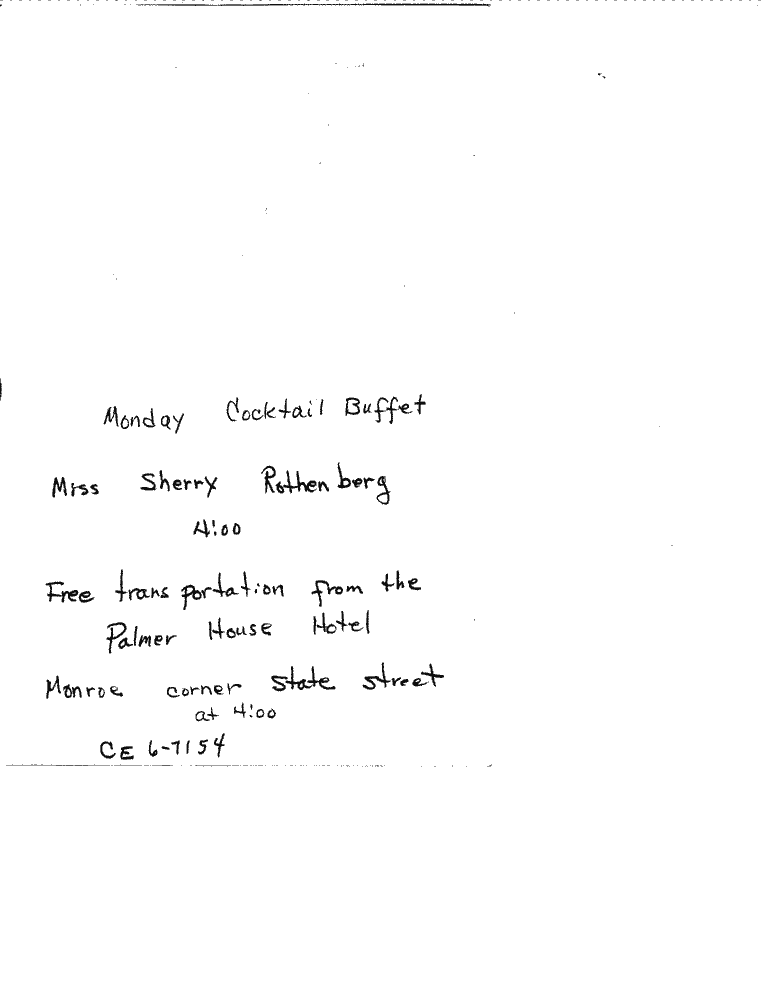 Monday Cocktail Buffet
Miss Sherry Rothenberg
4:00
Free transportation from the
Palmer House Hotel
Monroe corner State street
at 4:00
CE 6-7154